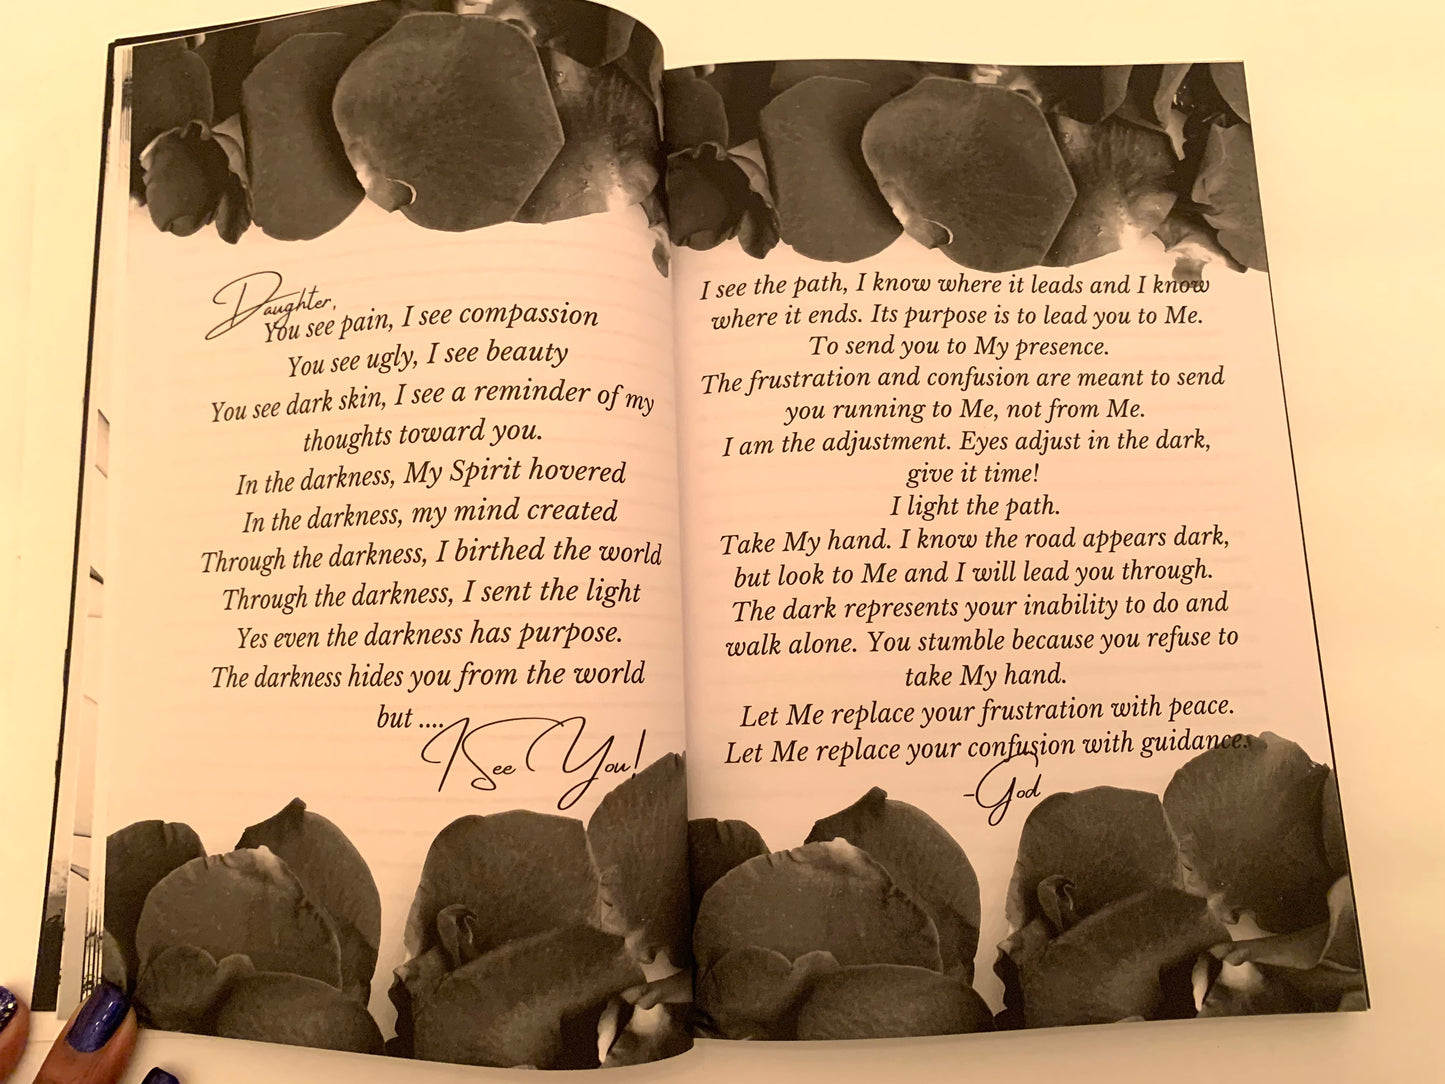 Daughter,
You see pain, I see compassion
You see ugly, I see beauty
You see dark skin, I see a reminder of my
thoughts toward you.
In the darkness, My Spirit hovered
In the darkness, my mind created
Through the darkness, I birthed the world
Through the darkness, I sent the light
Yes even the darkness has purpose.
The darkness hides you from the world
but ....
I See You!
I see the path, I know where it leads and I know
where it ends. Its purpose is to lead you to Me.
To send you to My presence.
The frustration and confusion are meant to send
you running to Me, not from Me.
I am the adjustment. Eyes adjust in the dark,
give it time!
I light the path.
Take My hand. I know the road appears dark,
but look to Me and I will lead you through.
The dark represents your inability to do and
walk alone. You stumble because you refuse to
take My hand.
Let Me replace your frustration with peace.
Let Me replace your confusion with guidance.
-God